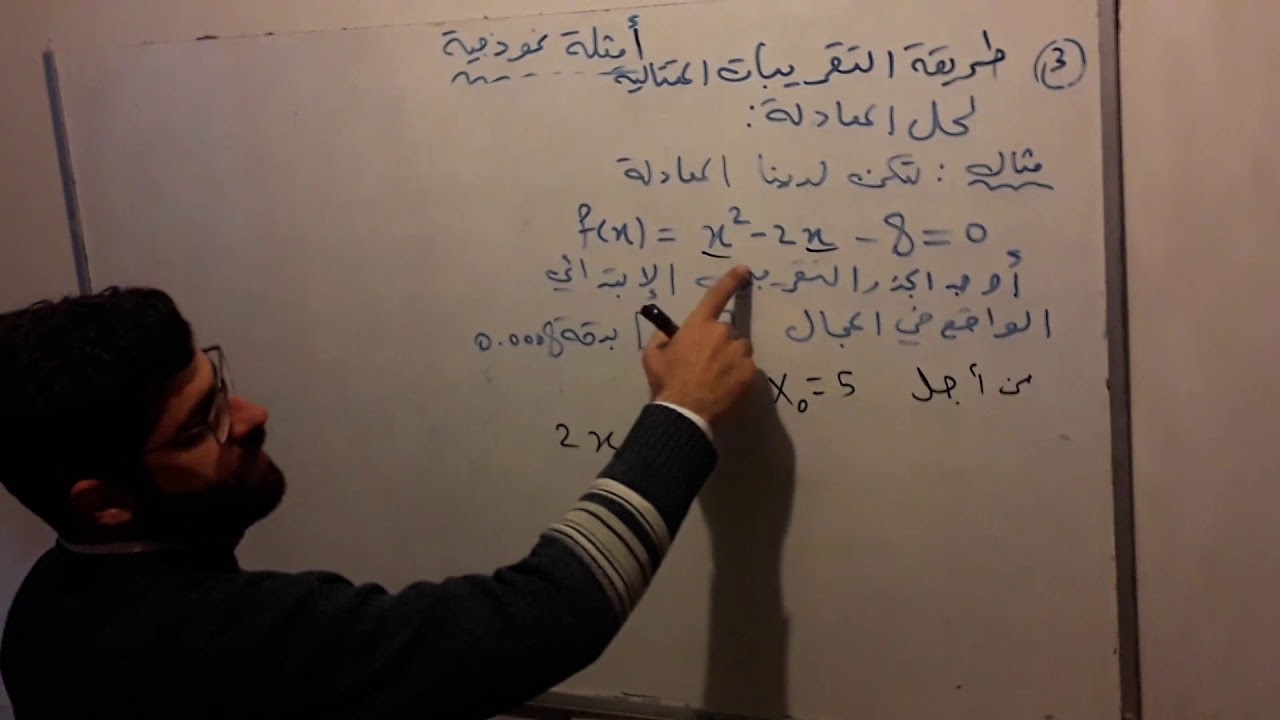 أمثلة نموذجية
③ طريقة التقريبات المتتالية
لحل المعادلة:
مثال: لتكن لدينا المعادلة
f(x) = x² - 2x - 8 = 0
أوجد الجذر التقريبي الإبتدائي
الواقع في المجال [ ] بدقة 0.0008
من أجل X₀ = 5
2x